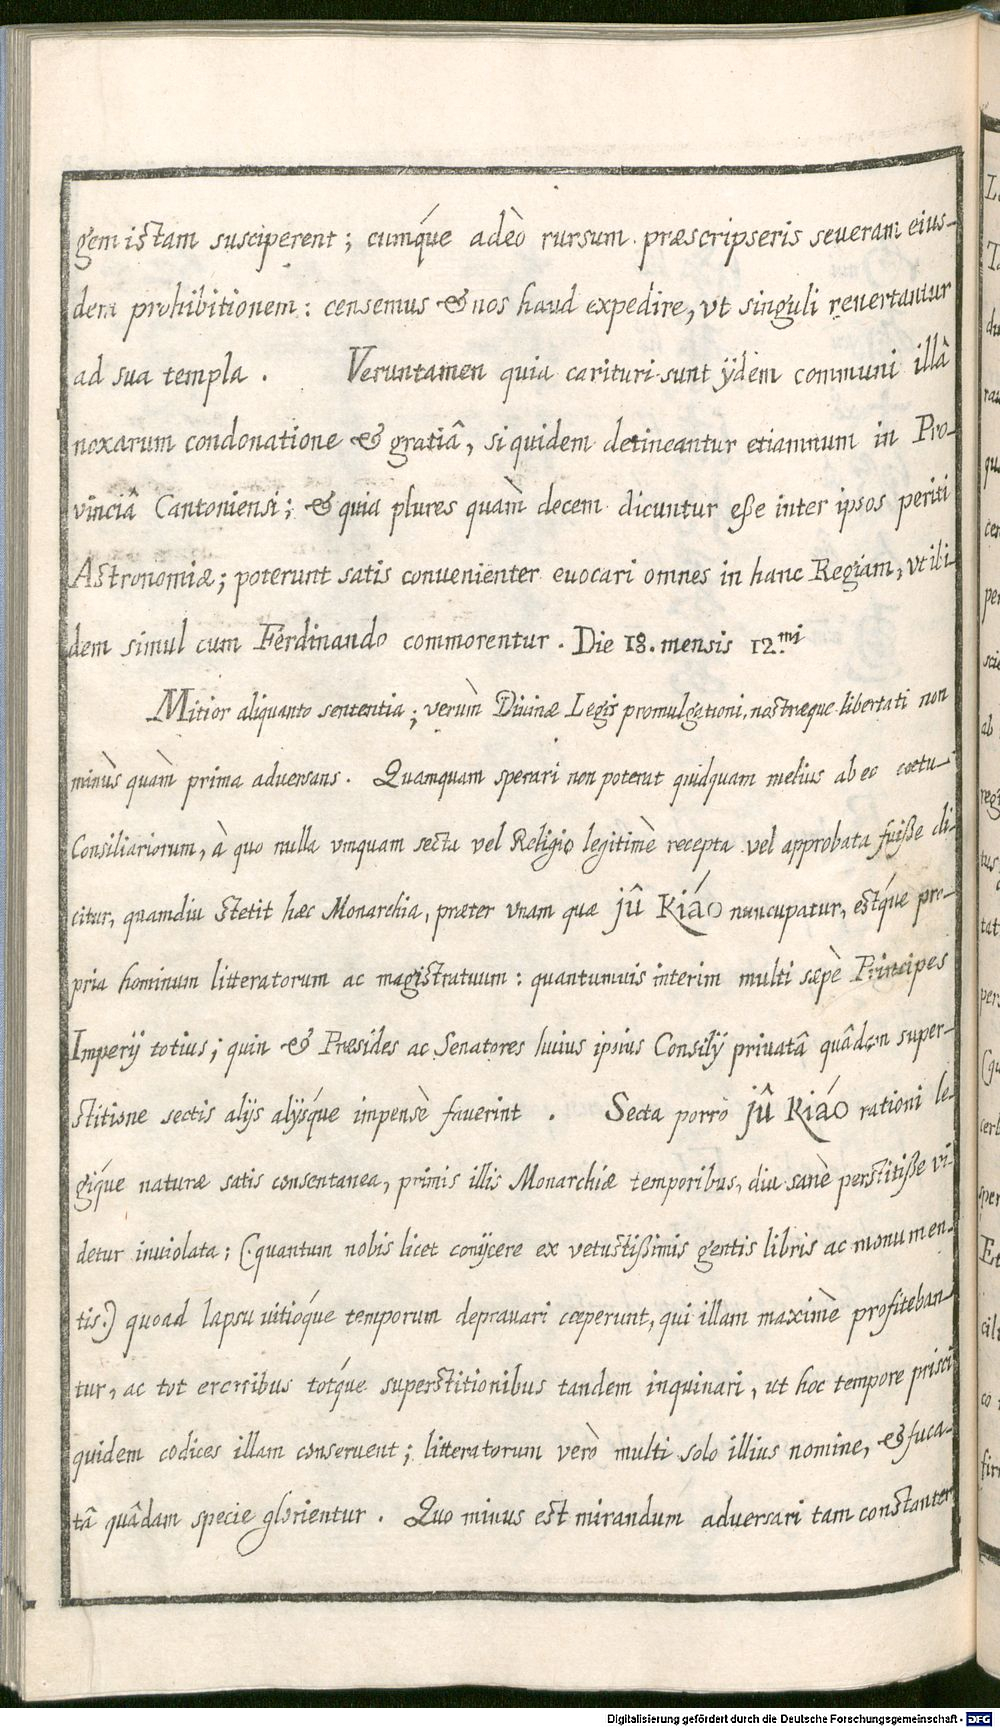 gem istam susciperent; cumq́ue adeò rursum præscripseris seueram eius-
dem prohibitionem: censemus & nos haud expedire, vt singuli reuertantur
ad sua templa. Veruntamen quia carituri sunt ÿdem communi illâ
noxarum condonatione & gratiâ, siquidem detineantur etiamnum in Pro-
vinciâ Cantoniensi; & quia plures quàm decem dicuntur eße inter ipsos periti
Astronomiæ; poterunt satis conuenienter euocari omnes in hanc Regiam, vt ibi-
dem simul cum Ferdinando commorentur. Die 18. mensis 12.mi
Mitior aliquanto sententia; verùm Diuinæ Legis promulgationi, nostræque libertati non
minùs quàm prima aduersans. Quamquam sperari non poterat quidquam melius ab eo coetu
Consiliariorum, à quo nulla vnquam secta vel Religio legitimè recepta vel approbata fuiße di-
citur, quamdiu stetit hæc Monarchia, præter vnam quæ jû Kiáo nuncupatur, estq́ue pro-
pria hominum litteratorum ac magistratuum: quantumuis interim multi sæpè Principes
Imperÿ totius; quin & Præsides ac Senatores huius ipsius Consilÿ priuatâ quâdam super-
stitione sectis alÿs alÿsq́ue impensè fauerint. Secta porrò jû Kiáo rationi le-
giq́ue naturæ satis consentanea, primis illis Monarchiæ temporibus, diu sanè perstitiße vi-
detur inuiolata; (quantum nobis licet conÿcere ex vetustißimis gentis libris ac monumen-
tis.) quoad lapsu uitioq́ue temporum deprauari coeperunt, qui illam maximè profiteban-
tur, ac tot erroribus totq́ue superstitionibus tandem inquinari, ut hoc tempore prisci
quidem codices illam conseruent; litteratorum verò multi solo illius nomine, & fuca-
tâ quâdam specie glorientur. Quo minus est mirandum aduersari tam constanter
Digitalisierung gefördert durch die Deutsche Forschungsgemeinschaft - DFG